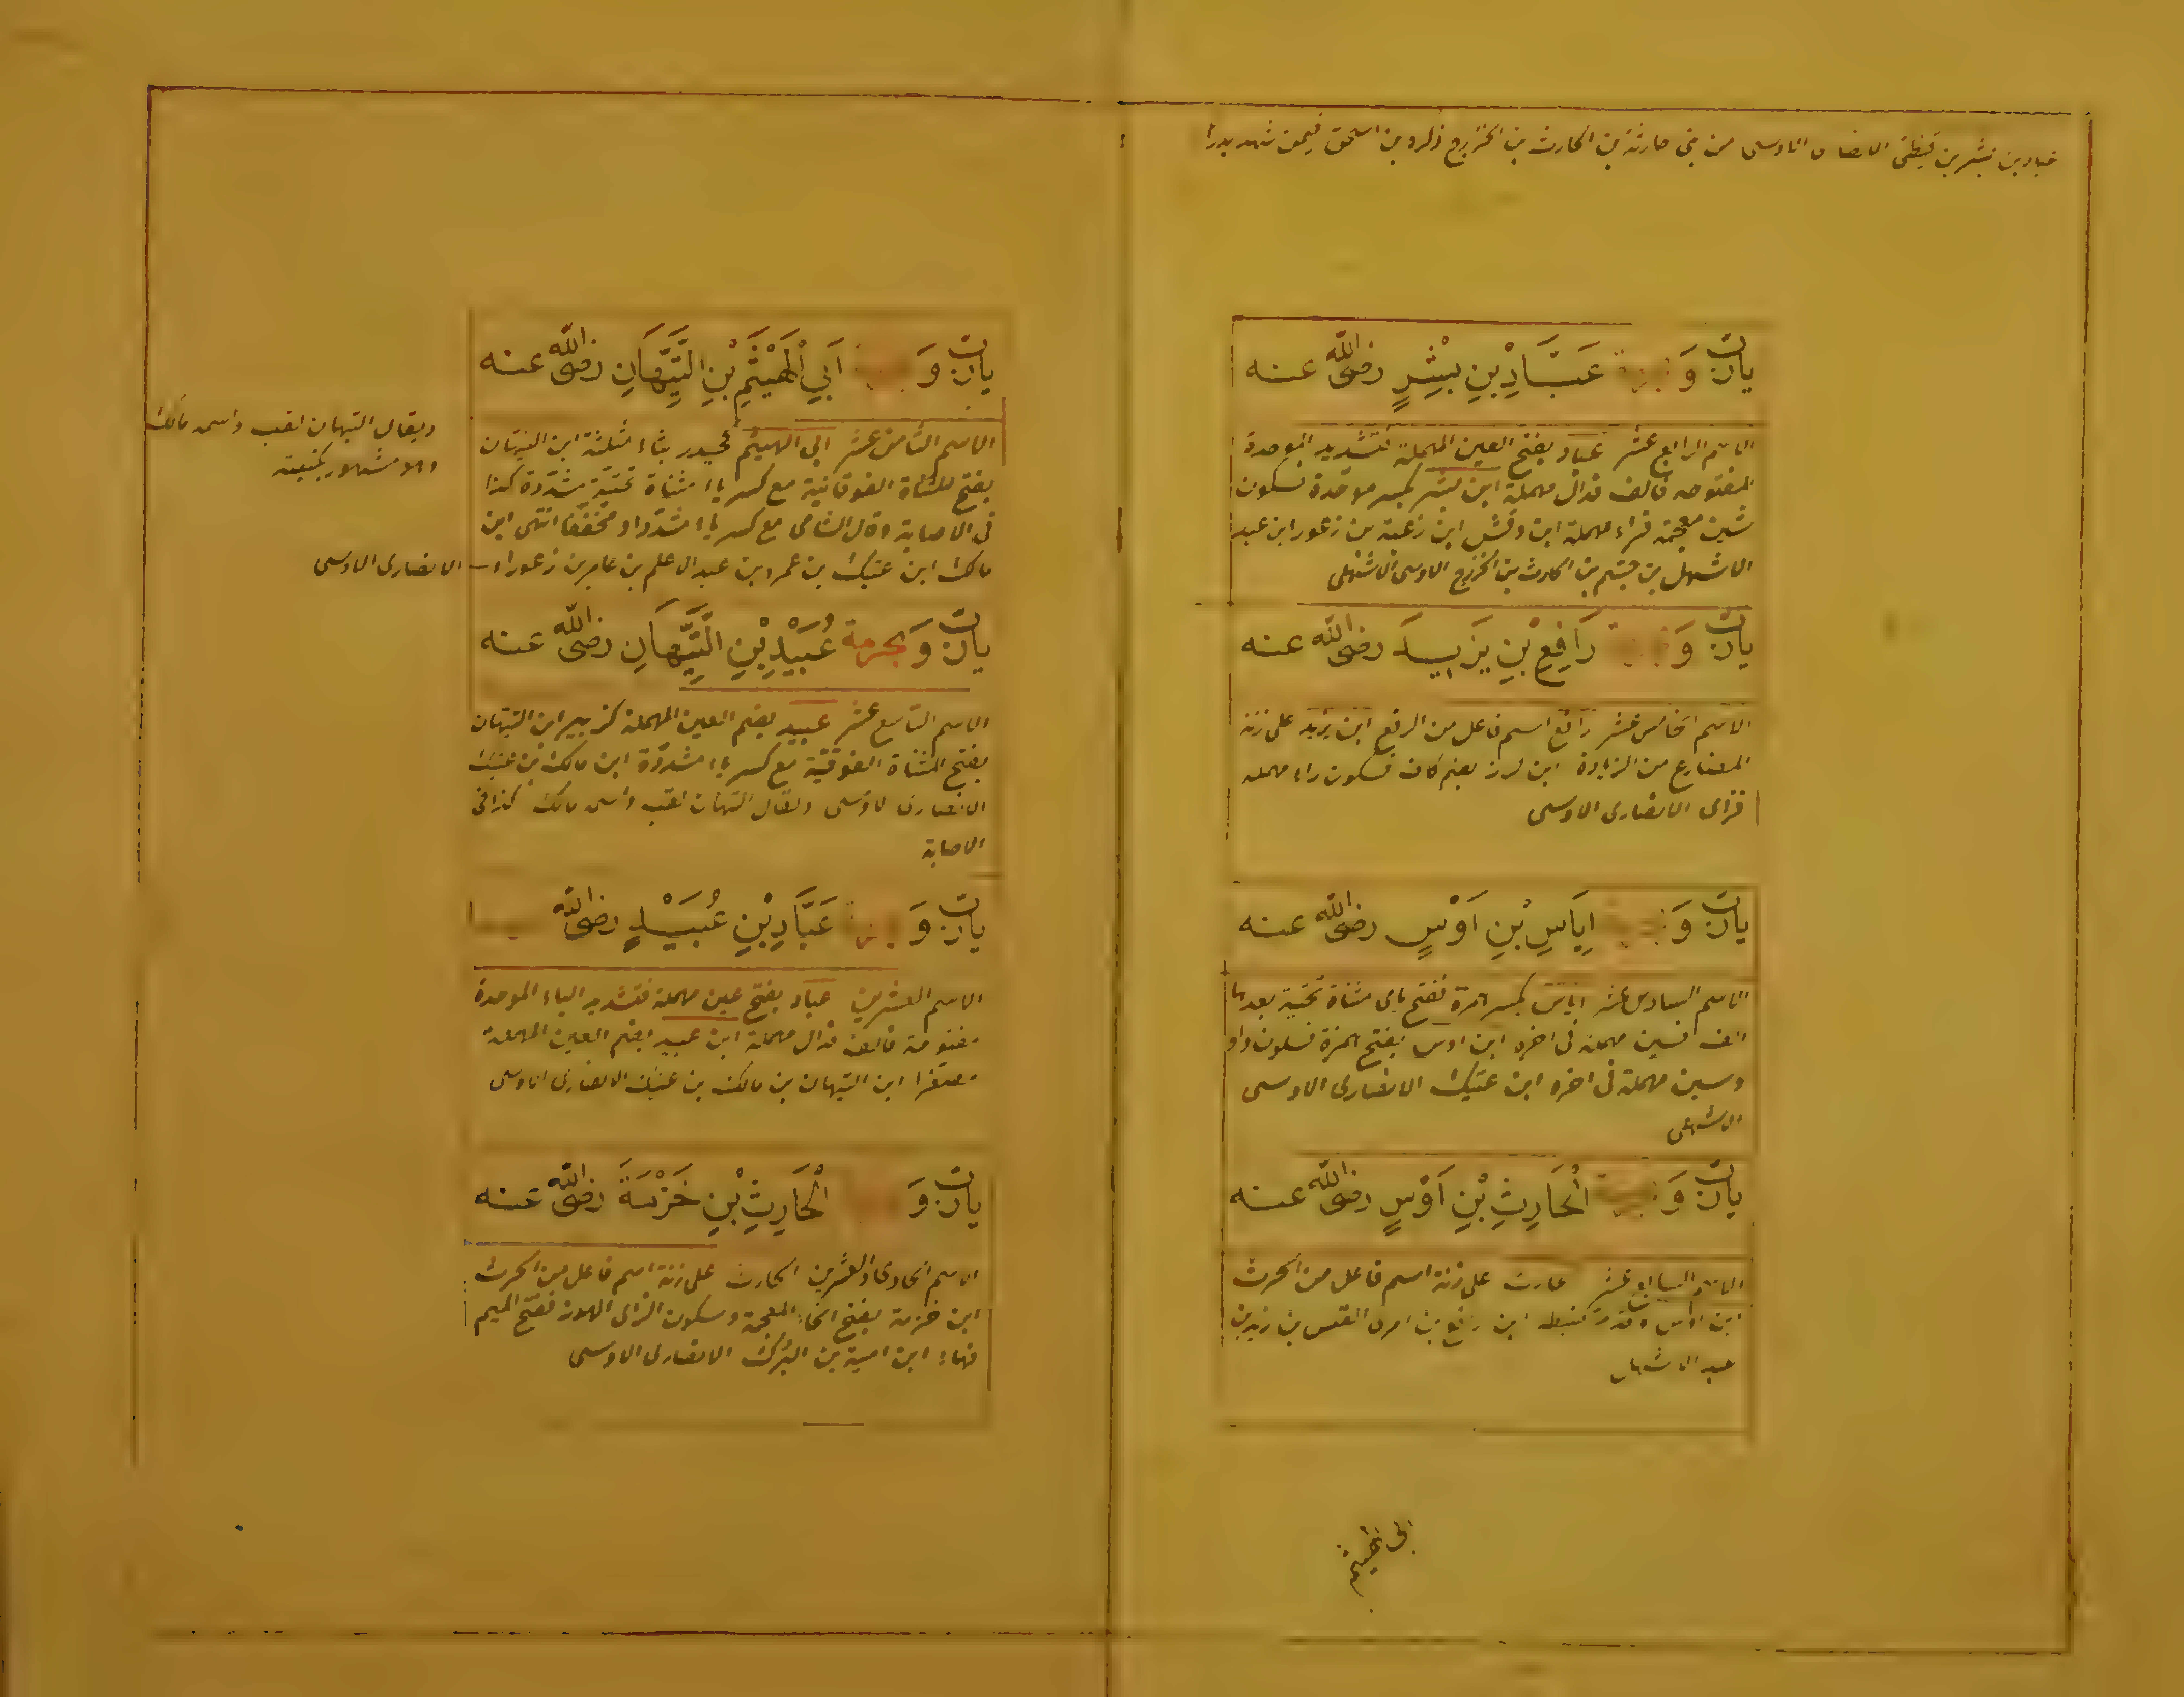 عباد بن بشر بن قيظى الانصارى الاوسى من بنى حارثة بن الحارث بن الخزرج ذكره بن اسحق فيمن شهد بدرا
يارب وَ عَبَّادِ بْنِ بِشْرٍ رضى الله عنه
الاسم الرابع عشر عباد بفتح العين المهملة فتشديد الموحدة
المفتوحه فالف فدال مهملة ابن بشر بكسر موحدة فسكون
شين معجمة فراء مهملة ابن وقش ابن زغبة بن زعورا بن عبد
الاشهل بن جشم بن الحارث بن الخزرج الاوسى الاشهلى
يارب وَ رَافِعِ بْنِ يَزِيدَ رضى الله عنه
الاسم الخامس عشر رافع اسم فاعل من الرفع ابن يزيد على زنة
المضارع من الزيادة ابن كرز بضم كاف فسكون راء مهمله
فزاى الانصارى الاوسى
يارب وَ اِيَاسِ بْنِ اَوْسٍ رضى الله عنه
الاسم السادس عشر اياس بكسر همزة ففتح ياى مثناة تحتية بعدها
الف فسين مهمله فى اخره ابن اوس بفتح همزة فسكون واو
وسين مهملة فى اخره ابن عتيك الانصارى الاوسى
الاشهلى
يارب وَ الْحَارِثِ بْنِ اَوْسٍ رضى الله عنه
الاسم السابع عشر حارث على زنة اسم فاعل من الحرث
ابن اوس ضبطه ابن رافع بن امرى القيس بن زيد بن
عبد الاشهل
ابى الهيثم
يارب وَ اَبِي الْهَيْثَمِ بْنِ التَّيِّهَانِ رضى الله عنه
الاسم الثامن عشر ابى الهيثم كحيدر بثاء مثلثة ابن التيهان
بفتح المثناة الفوقانية مع كسر ياء مثناة تحتية مشددة كذا
فى الاصابة وقال الشامى مع كسر ياء مشددا ومخففا انتهى ابن
مالك ابن عتيك بن عمرو بن عبد الاعلم بن عامر بن زعوراء الانصارى الاوسى
ويقال التيهان لقب واسمه مالك
وهو مشهور بكنيته
يارب وَبحرمة عُبَيْدِ بْنِ التَّيِّهَانِ رضى الله عنه
الاسم التاسع عشر عبيد بضم العين المهملة كزبير ابن التيهان
بفتح المثناة الفوقية مع كسر ياء مشددة ابن مالك بن عتيك
الانصارى الاوسى ويقال التيهان لقب واسمه مالك كذا فى
الاصابة
يارب وَ عَبَّادِ بْنِ عُبَيْدٍ رضى الله
الاسم العشرين عباد بفتح عين مهملة فتشديد الباء الموحدة
مفتوحة فالف فدال مهملة ابن عبيد بضم العين المهملة
مصغرا ابن التيهان بن مالك بن عتيك الانصارى الاوسى
يارب وَ الْحَارِثِ بْنِ خَزْمَةَ رضى الله عنه
الاسم الحادى والعشرين الحارث على زنة اسم فاعل من الحرث
ابن خزمة بفتح الخاء المعجمة وسكون الزاى الهوز ففتح الميم
فهاء ابن امية بن البرك الانصارى الاوسى